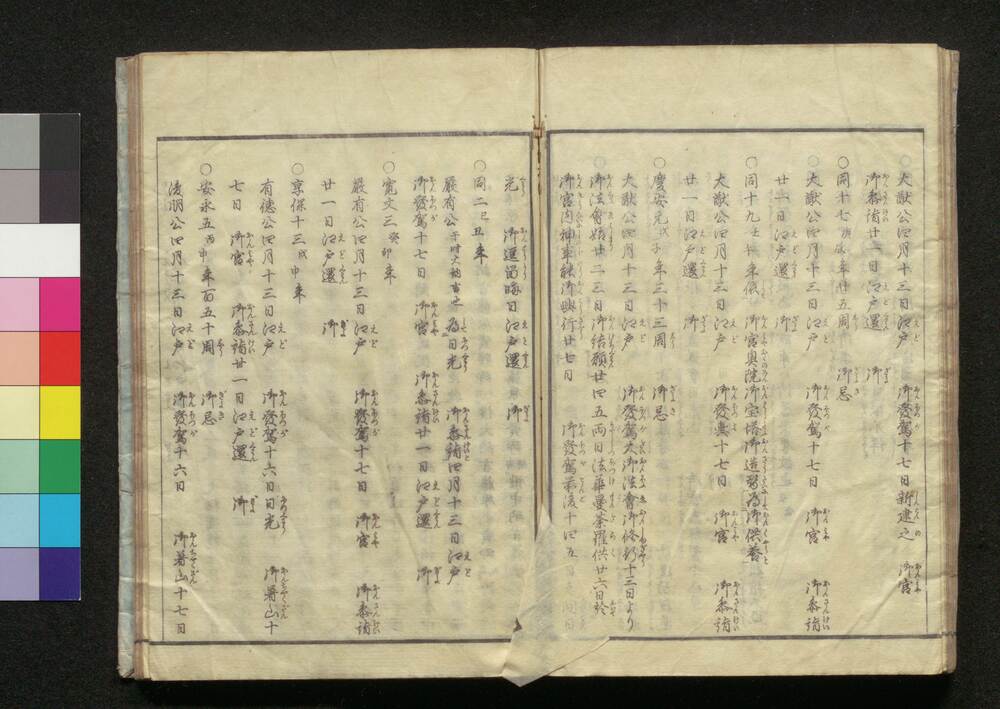 ○大猷公四月十三日江戸 御發駕十七日新建之 御宮
御參詣廿二日江戸還 御
○同十七庚辰年廿五周 御忌
大猷公四月十三日江戸 御發駕十七日 御宮 御參詣
廿一日江戸還 御
○同十九壬午年依 御宮奥院御宝塔御造替為御供養
大猷公四月十三日江戸 御發輿十七日 御宮 御參詣
廿一日江戸還 御
○慶安元戊子年三十三周 御忌
大猷公四月十三日江戸 御發駕大御法會御修行十二日より
御法會始廿二三日御結願廿四五両日法華曼荼羅供廿六日於
御宮内神事能御興行廿七日 御發駕
光 御還留晦日江戸還 御
○同二己丑年
嚴有公于時大納言也為日光 御參詣四月十三日江戸
御發駕十七日 御宮 御參詣廿一日江戸還 御
○寛文三癸卯年
嚴有公四月十三日江戸 御發駕十七日 御宮 御參詣
廿一日江戸還 御
○享保十三戊申年
有德公四月十三日江戸 御發駕十六日日光 御着山十
七日 御宮 御參詣廿一日江戸還 御
○安永五丙申年百五十周 御忌
浚明公四月十三日江戸 御發駕十六日 御着山十七日